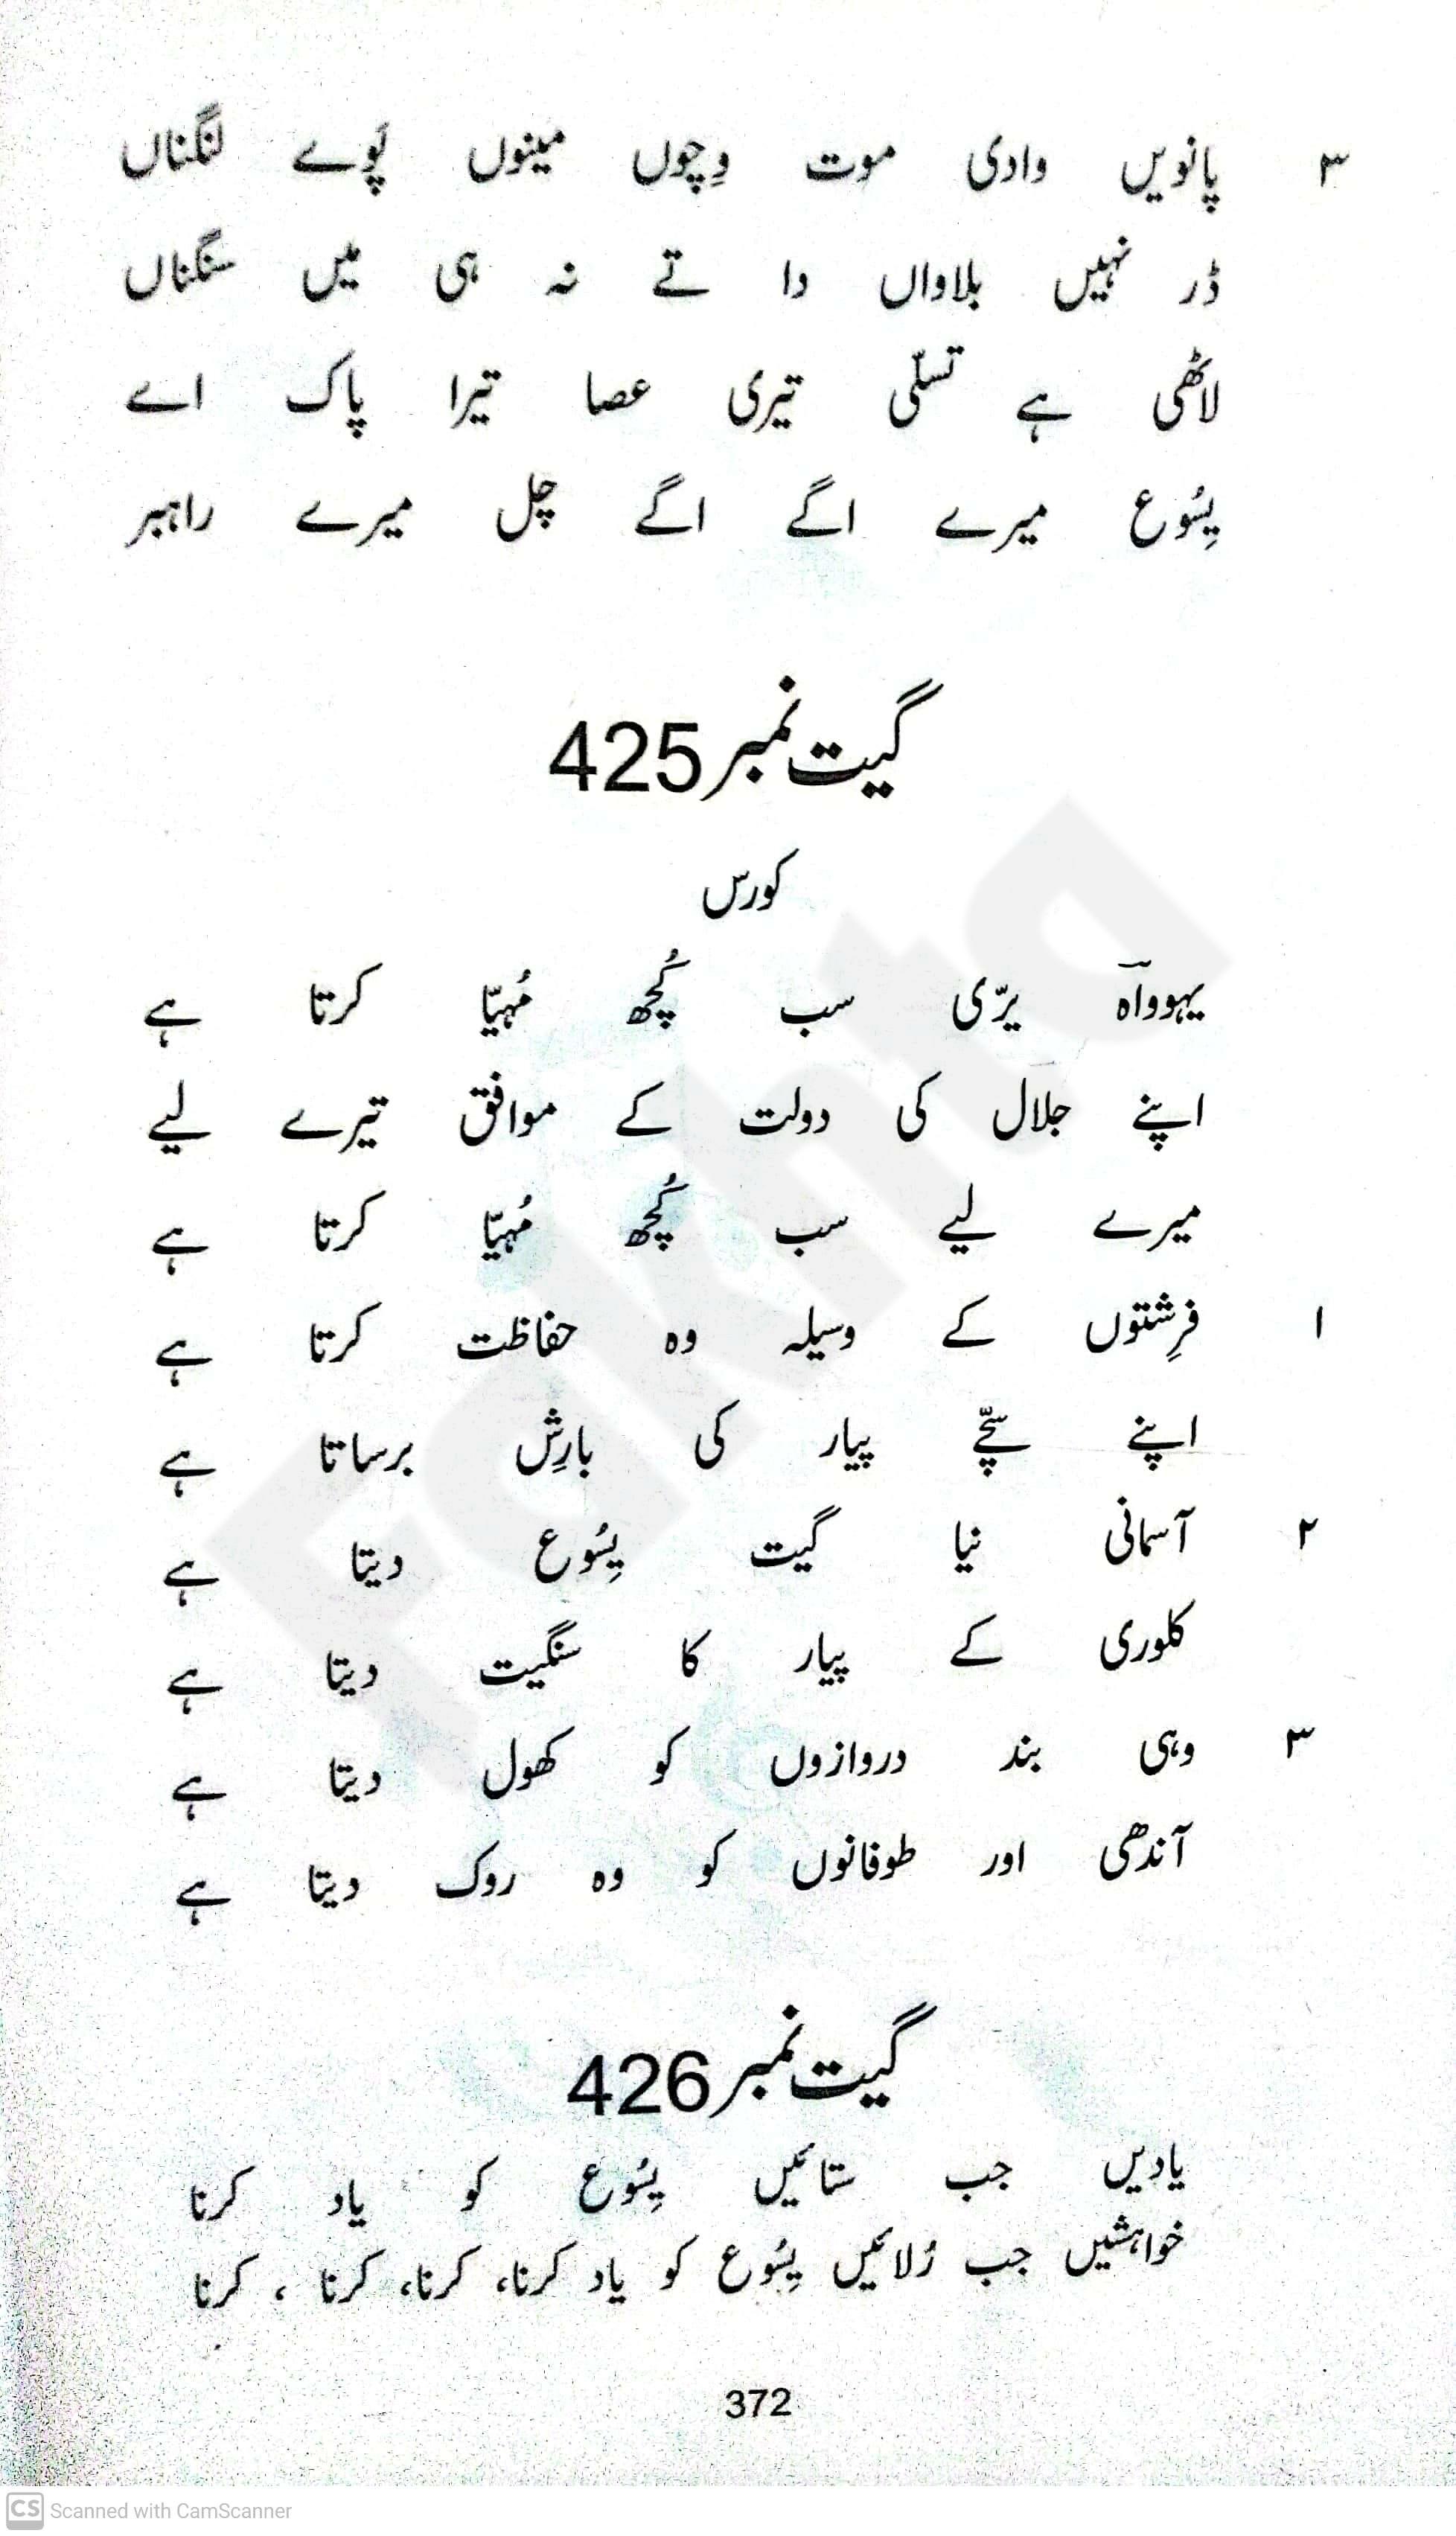 ۳ پانویں وادی موت وِچوں مینوں پَوے لنگناں
ڈر نہیں بلاواں دا تے نہ ہی میں سنگناں
لاٹھی ہے تسلّی تیری عصا تیرا پاک اے
یِسُوع میرے اگے اگے چل میرے راہبر
گیت نمبر 425
کورس
یہوواہ یرّی سب کُچھ مُہیّا کرتا ہے
اپنے جلال کی دولت کے موافق تیرے لیے
میرے لیے سب کُچھ مُہیّا کرتا ہے
۱ فرِشتوں کے وسیلہ وہ حفاظت کرتا ہے
اپنے سچّے پیار کی بارِش برساتا ہے
۲ آسمانی نیا گیت یِسُوع دیتا ہے
کلوری کے پیار کا سنگیت دیتا ہے
۳ وہی بند دروازوں کو کھول دیتا ہے
آندھی اور طوفانوں کو وہ روک دیتا ہے
گیت نمبر 426
یادیں جب ستائیں یِسُوع کو یاد کرنا
خواہشیں جب رُلائیں یِسُوع کو یاد کرنا، کرنا، کرنا ، کرنا
372
Fakhta
CS Scanned with CamScanner